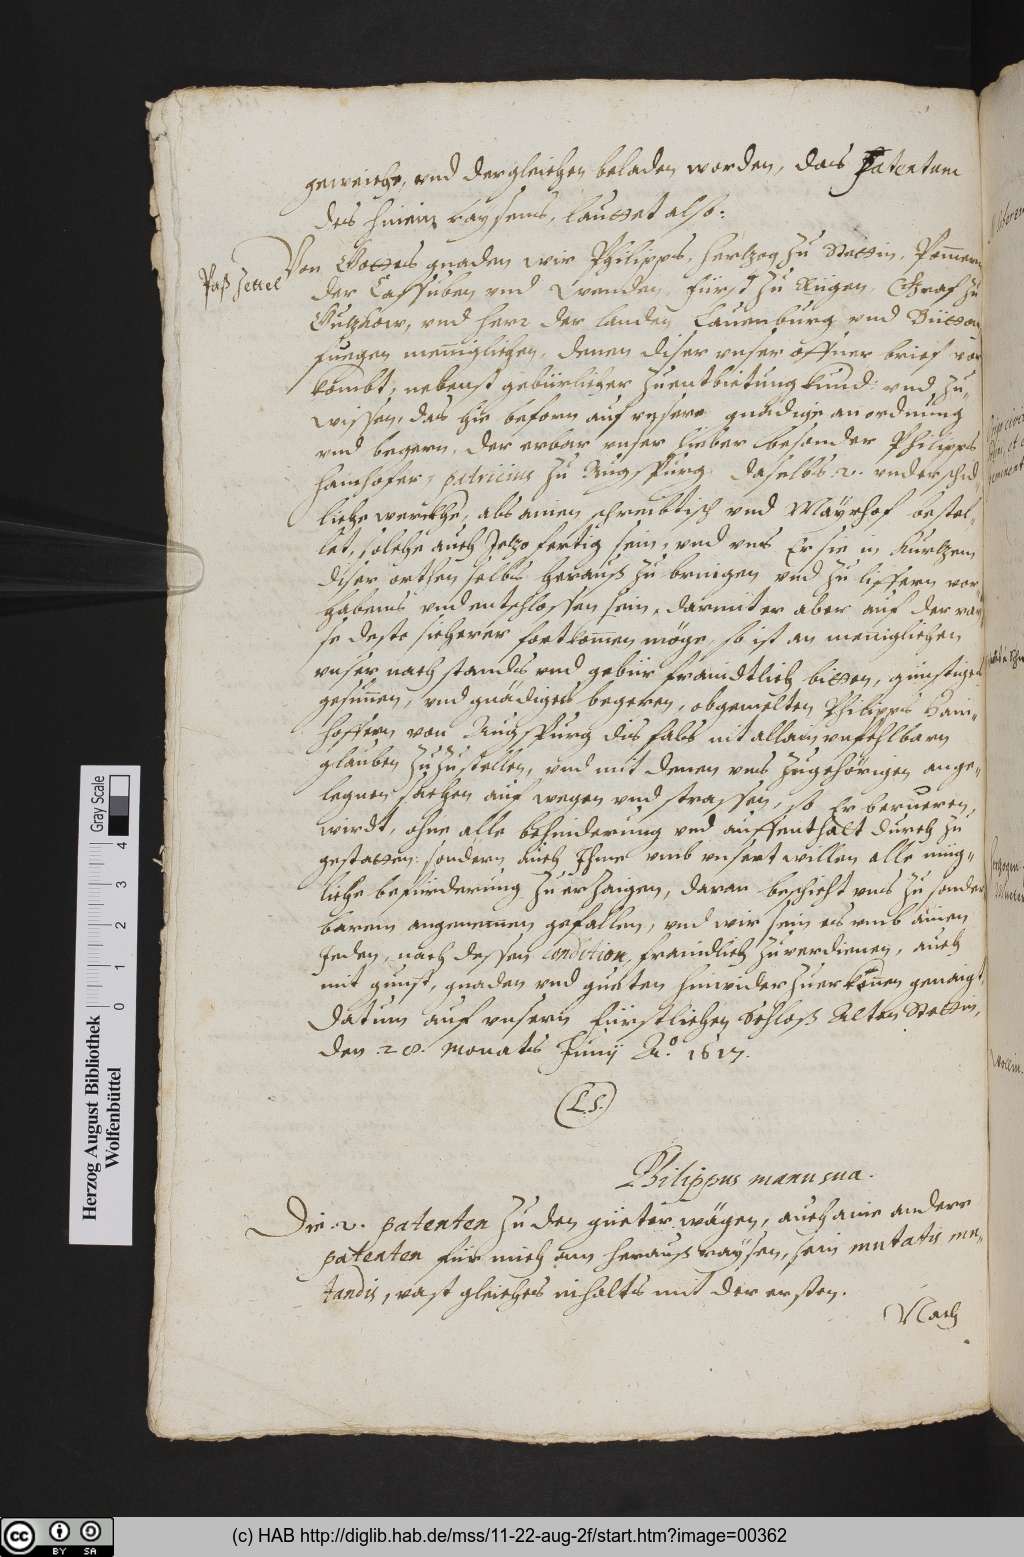 geweiche, vnd dergleichen beladen worden, das Patentum
des hinein raysens, lauttet also:
Paß zettel
Von Gottes gnaden wir Philipps, Hertzog zu Stettin, Pom̄ern
der Cassuben vnd Wenden, Fürst zu Rügen, Graf zu
Gutzkow, vnd herr der landen Lauenburg vnd Büttow
fuegen meniglichen, denen diser vnser offner brief vor
kombt, nebenst gebürlicher zuentbietung kund: vnd zu
wissen, das hie beforn auf vnsere gnädige anordnung
vnd begern, der erbar vnser lieber besonder Philipps
Hainhofer, patricius zu Augspurg, daselbs 2. vnderschid
liche werckhe, als ainen schreibtisch vnd Mayrhof bestel-
let, solche auch Jetzo fertig sein, vnd vns Er sie in kurtzem
diser orthen selbs herauß zu bringen vnd zu liffern vor
habens vnd entschlossen sein, darmit er aber auf der ray
se desto sicherer fortkom̄en möge, so ist an meniglichen
vnser nach stands vnd gebür fraindtlich bitten, günstiges
gesinnen, vnd gnädiges begeren, obgemelten Philipps Hain-
hoffern von Augspurg dis fals nit allain vnfehlbarn
glauben zuzustellen, vnd mit denen vns zugehörigen ange-
legnen sachen auf wegen vnd strassen, so Er berueren
wirdt, ohne alle behinderung vnd auffenthalt durch zu
gestatten: sondern auch Ihme vmb vnsert willen alle müg-
liche befürderung zu erzaigen, daran beschicht vns zu sonder
barem angenemen gefallen, vnd wir sein es vmb ainen
Jeden, nach dessen condition, fraindlich zuverdienen, auch
mit gunst, gnaden vnd gueten hinwider zuerkon̄en genaigt.
Datum auf vnserm fürstlichen Schloß Alten Stettin,
den 28. monats Junij A.o 1617.
L.S.
Philippus manu sua.
Die 2. patenten zu den güeter wägen, auch aine andere
patenten für mich am herauß raysen, sein mutatis mu-
tandis, vast gleiches inhalts mit der ersten.
Nach
Herzog August Bibliothek
Wolfenbüttel
Gray Scale
0 1 2 3 4
(c) HAB http://diglib.hab.de/mss/11-22-aug-2f/start.htm?image=00362
cc BY SA